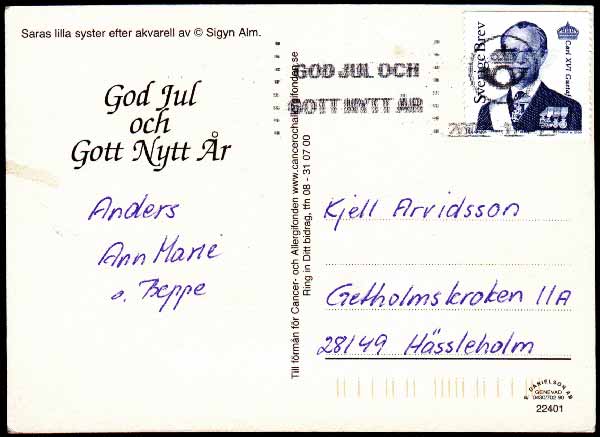 Saras lilla syster efter akvarell av © Sigyn Alm.
God Jul
och
Gott Nytt År
Anders
Ann Marie
o. Beppe
Till förmån för Cancer- och Allergifonden www.cancerochallergifonden.se
Ring in Ditt bidrag, tfn 08 - 31 07 00
GOD JUL OCH
GOTT NYTT ÅR
Sverige Brev
Carl XVI Gustaf
Kjell Arvidsson
Getholmskroken 11A
28149 Hässleholm
DANIELSON AB
GENEVAD
0430/702 90
22401